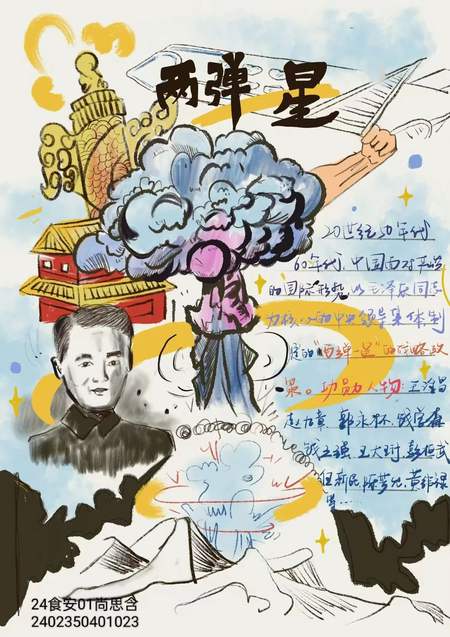 两弹 星
20世纪50年代
60年代,中国面对严峻
的国际形势,以毛泽东同志
为核心的中央领导集体制
定的"两弹一星"的战略政
策。功勋人物:王淦昌
赵九章 郭永怀 钱学森
钱三强 王大珩 彭桓武
陈芳允 黄纬禄
等...
24食安01尚思含
2402350401023